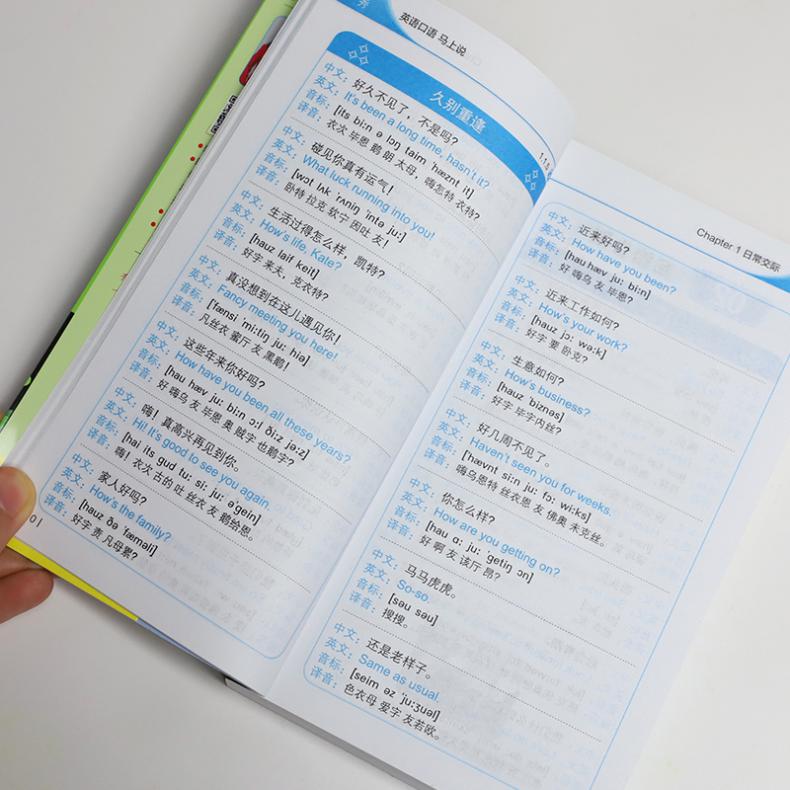 英语口语 马上说
久别重逢
中文：好久不见了，不是吗？
英文：It's been a long time, hasn't it?
音标：[its bi:n ə lɔŋ taim ˈhæznt it]
译音：衣次 毕恩 鹅 朗 太母，嗨怎特 衣特？
中文：碰见你真有运气！
英文：What luck running into you!
音标：[wɔt lʌk ˈrʌniŋ ˈintə ju:]
译音：卧特 拉克 软宁 因吐 友！
中文：生活过得怎么样，凯特？
英文：How's life, Kate?
音标：[hauz laif keit]
译音：好字 来夫，克衣特？
中文：真没想到在这儿遇见你！
英文：Fancy meeting you here!
音标：[ˈfænsi ˈmi:tiŋ ju: hiə]
译音：凡丝衣 蜜厅 友 黑鹅！
中文：这些年来你好吗？
英文：How have you been all these years?
音标：[hau hæv ju: bi:n ɔ:l ði:z jə:z]
译音：好 嗨乌 友 毕恩 奥 贼字 也鹅字？
中文：嗨！真高兴再见到你。
英文：Hi! It's good to see you again.
音标：[hai its gud tu: si: ju: əˈgein]
译音：嗨！衣次 古的 吐 丝衣 友 鹅给恩。
中文：家人好吗？
英文：How's the family?
音标：[hauz ðə ˈfæməli]
译音：好字 责 凡母累？
Chapter 1 日常交际
中文：近来好吗？
英文：How have you been?
音标：[hau hæv ju: bi:n]
译音：好 嗨乌 友 毕恩？
中文：近来工作如何？
英文：How's your work?
音标：[hauz jɔ: wə:k]
译音：好字 要 卧克？
中文：生意如何？
英文：How's business?
音标：[hauz ˈbiznəs]
译音：好字 毕字内丝？
中文：好几周不见了。
英文：Haven't seen you for weeks.
音标：[hævnt si:n ju: fɔ: wi:ks]
译音：嗨乌恩特 丝衣恩 友 佛奥 未克丝。
中文：你怎么样？
英文：How are you getting on?
音标：[hau ɑ: ju: ˈgetiŋ ɔn]
译音：好 啊 友 该厅 昂？
中文：马马虎虎。
英文：So-so.
音标：[səu səu]
译音：搜搜。
中文：还是老样子。
英文：Same as usual.
音标：[seim əz ˈju:ʒuəl]
译音：色衣母 爱字 友若欧。